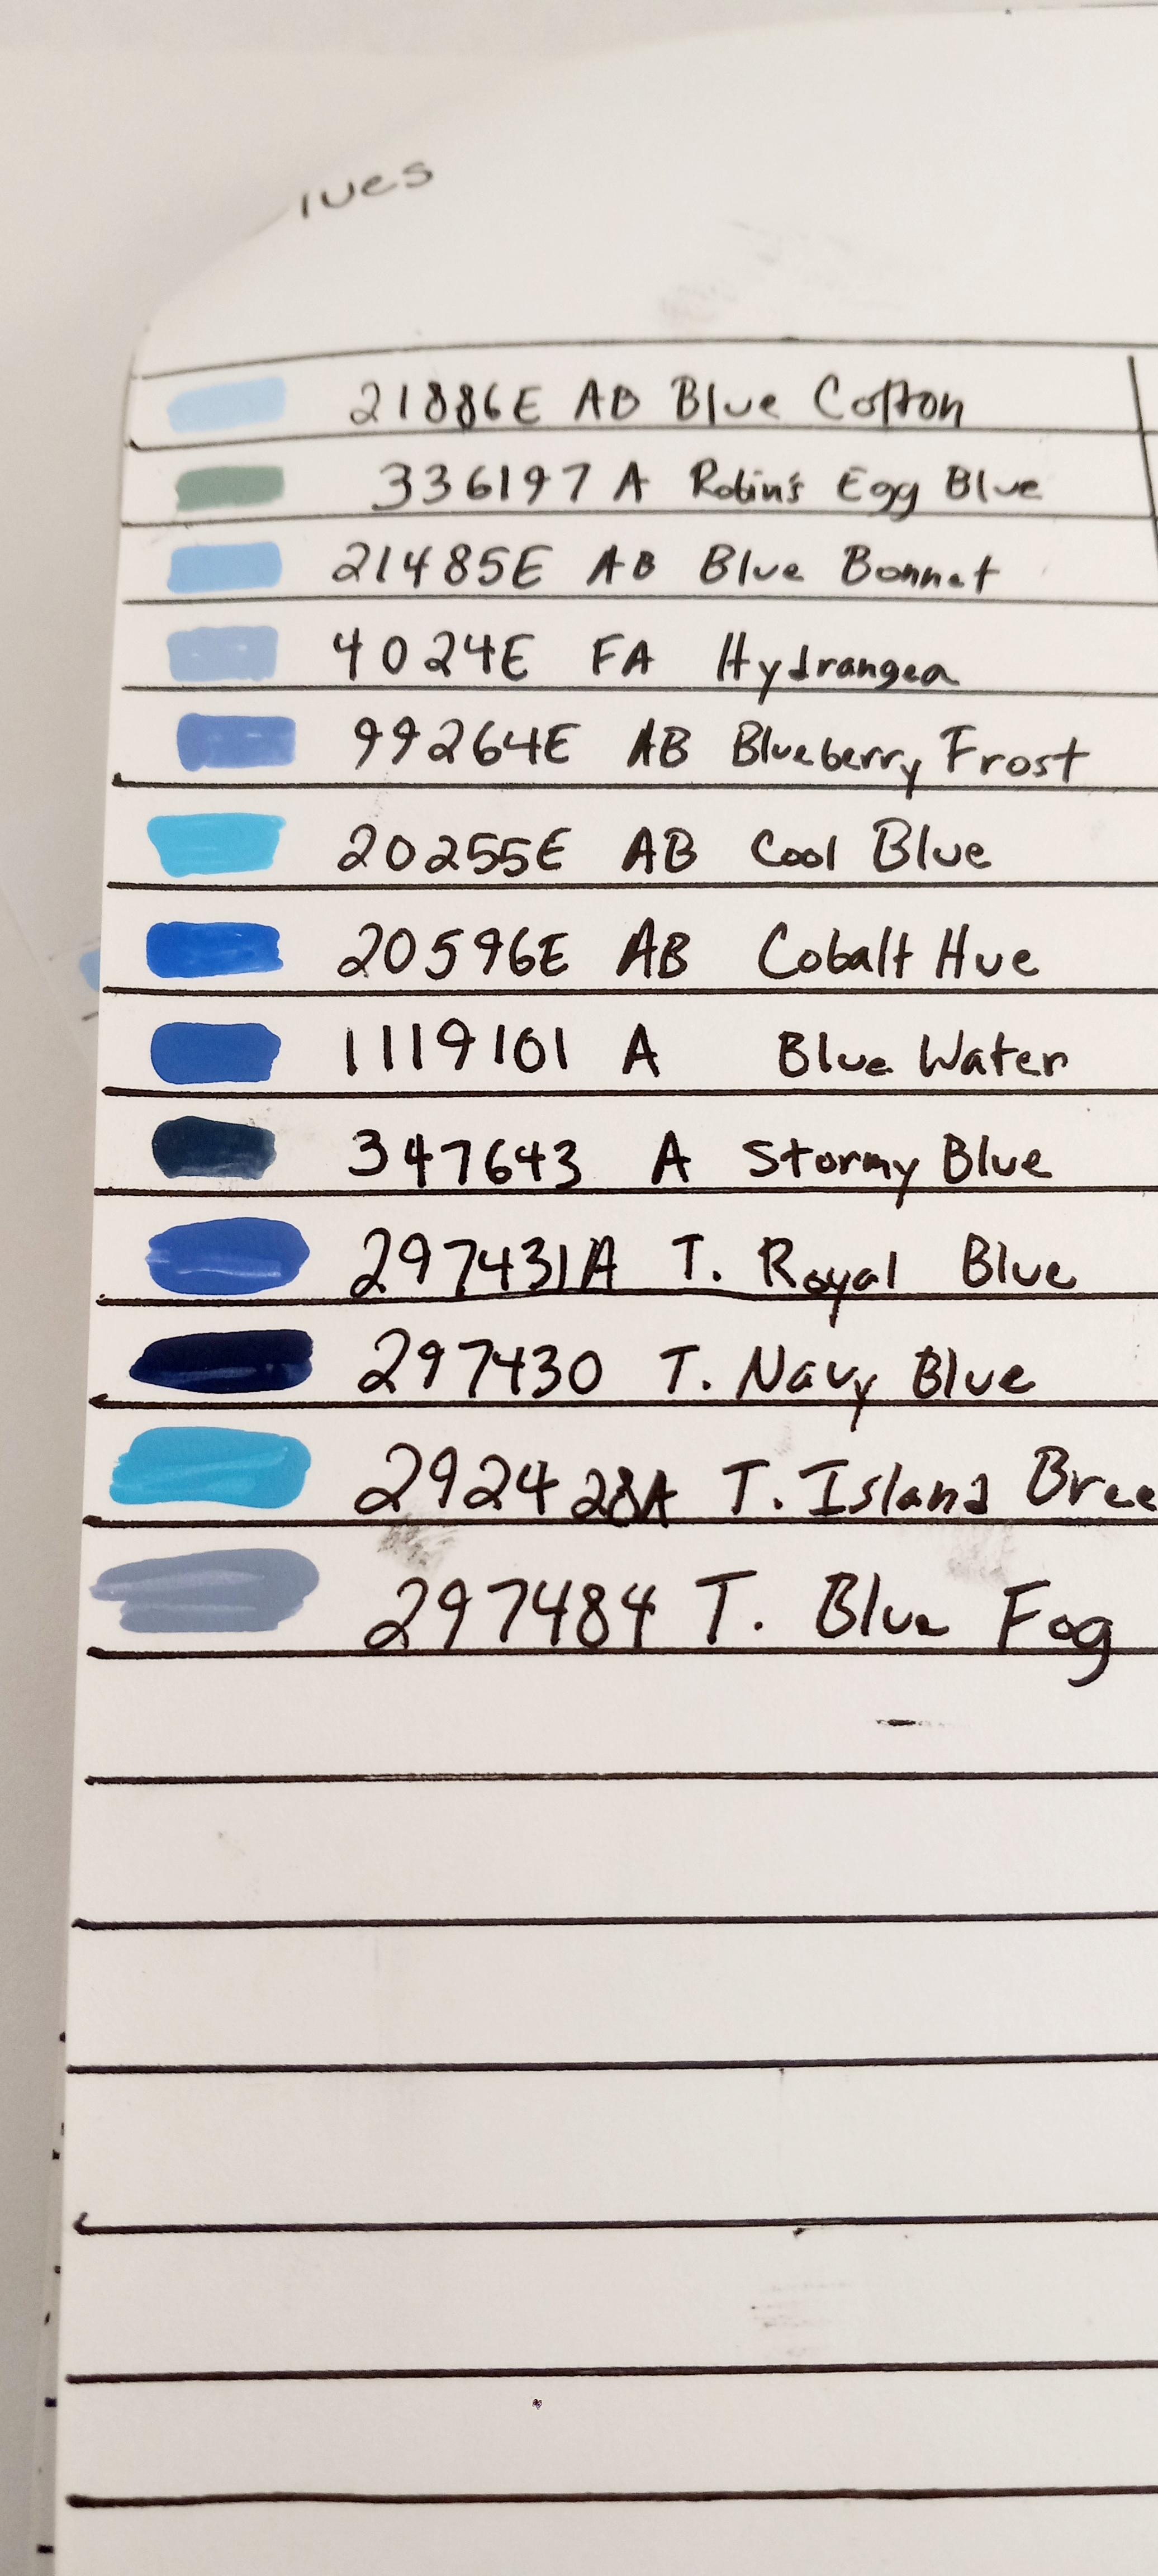 lues
21886E AB Blue Cotton
336197 A Robin's Egg Blue
21485E AB Blue Bonnet
4024E FA Hydrangea
99264E AB Blueberry Frost
20255E AB Cool Blue
20596E AB Cobalt Hue
1119101 A Blue Water
347643 A Stormy Blue
297431A T. Royal Blue
297430 T. Navy Blue
292428A T. Island Bree
297484 T. Blue Fog